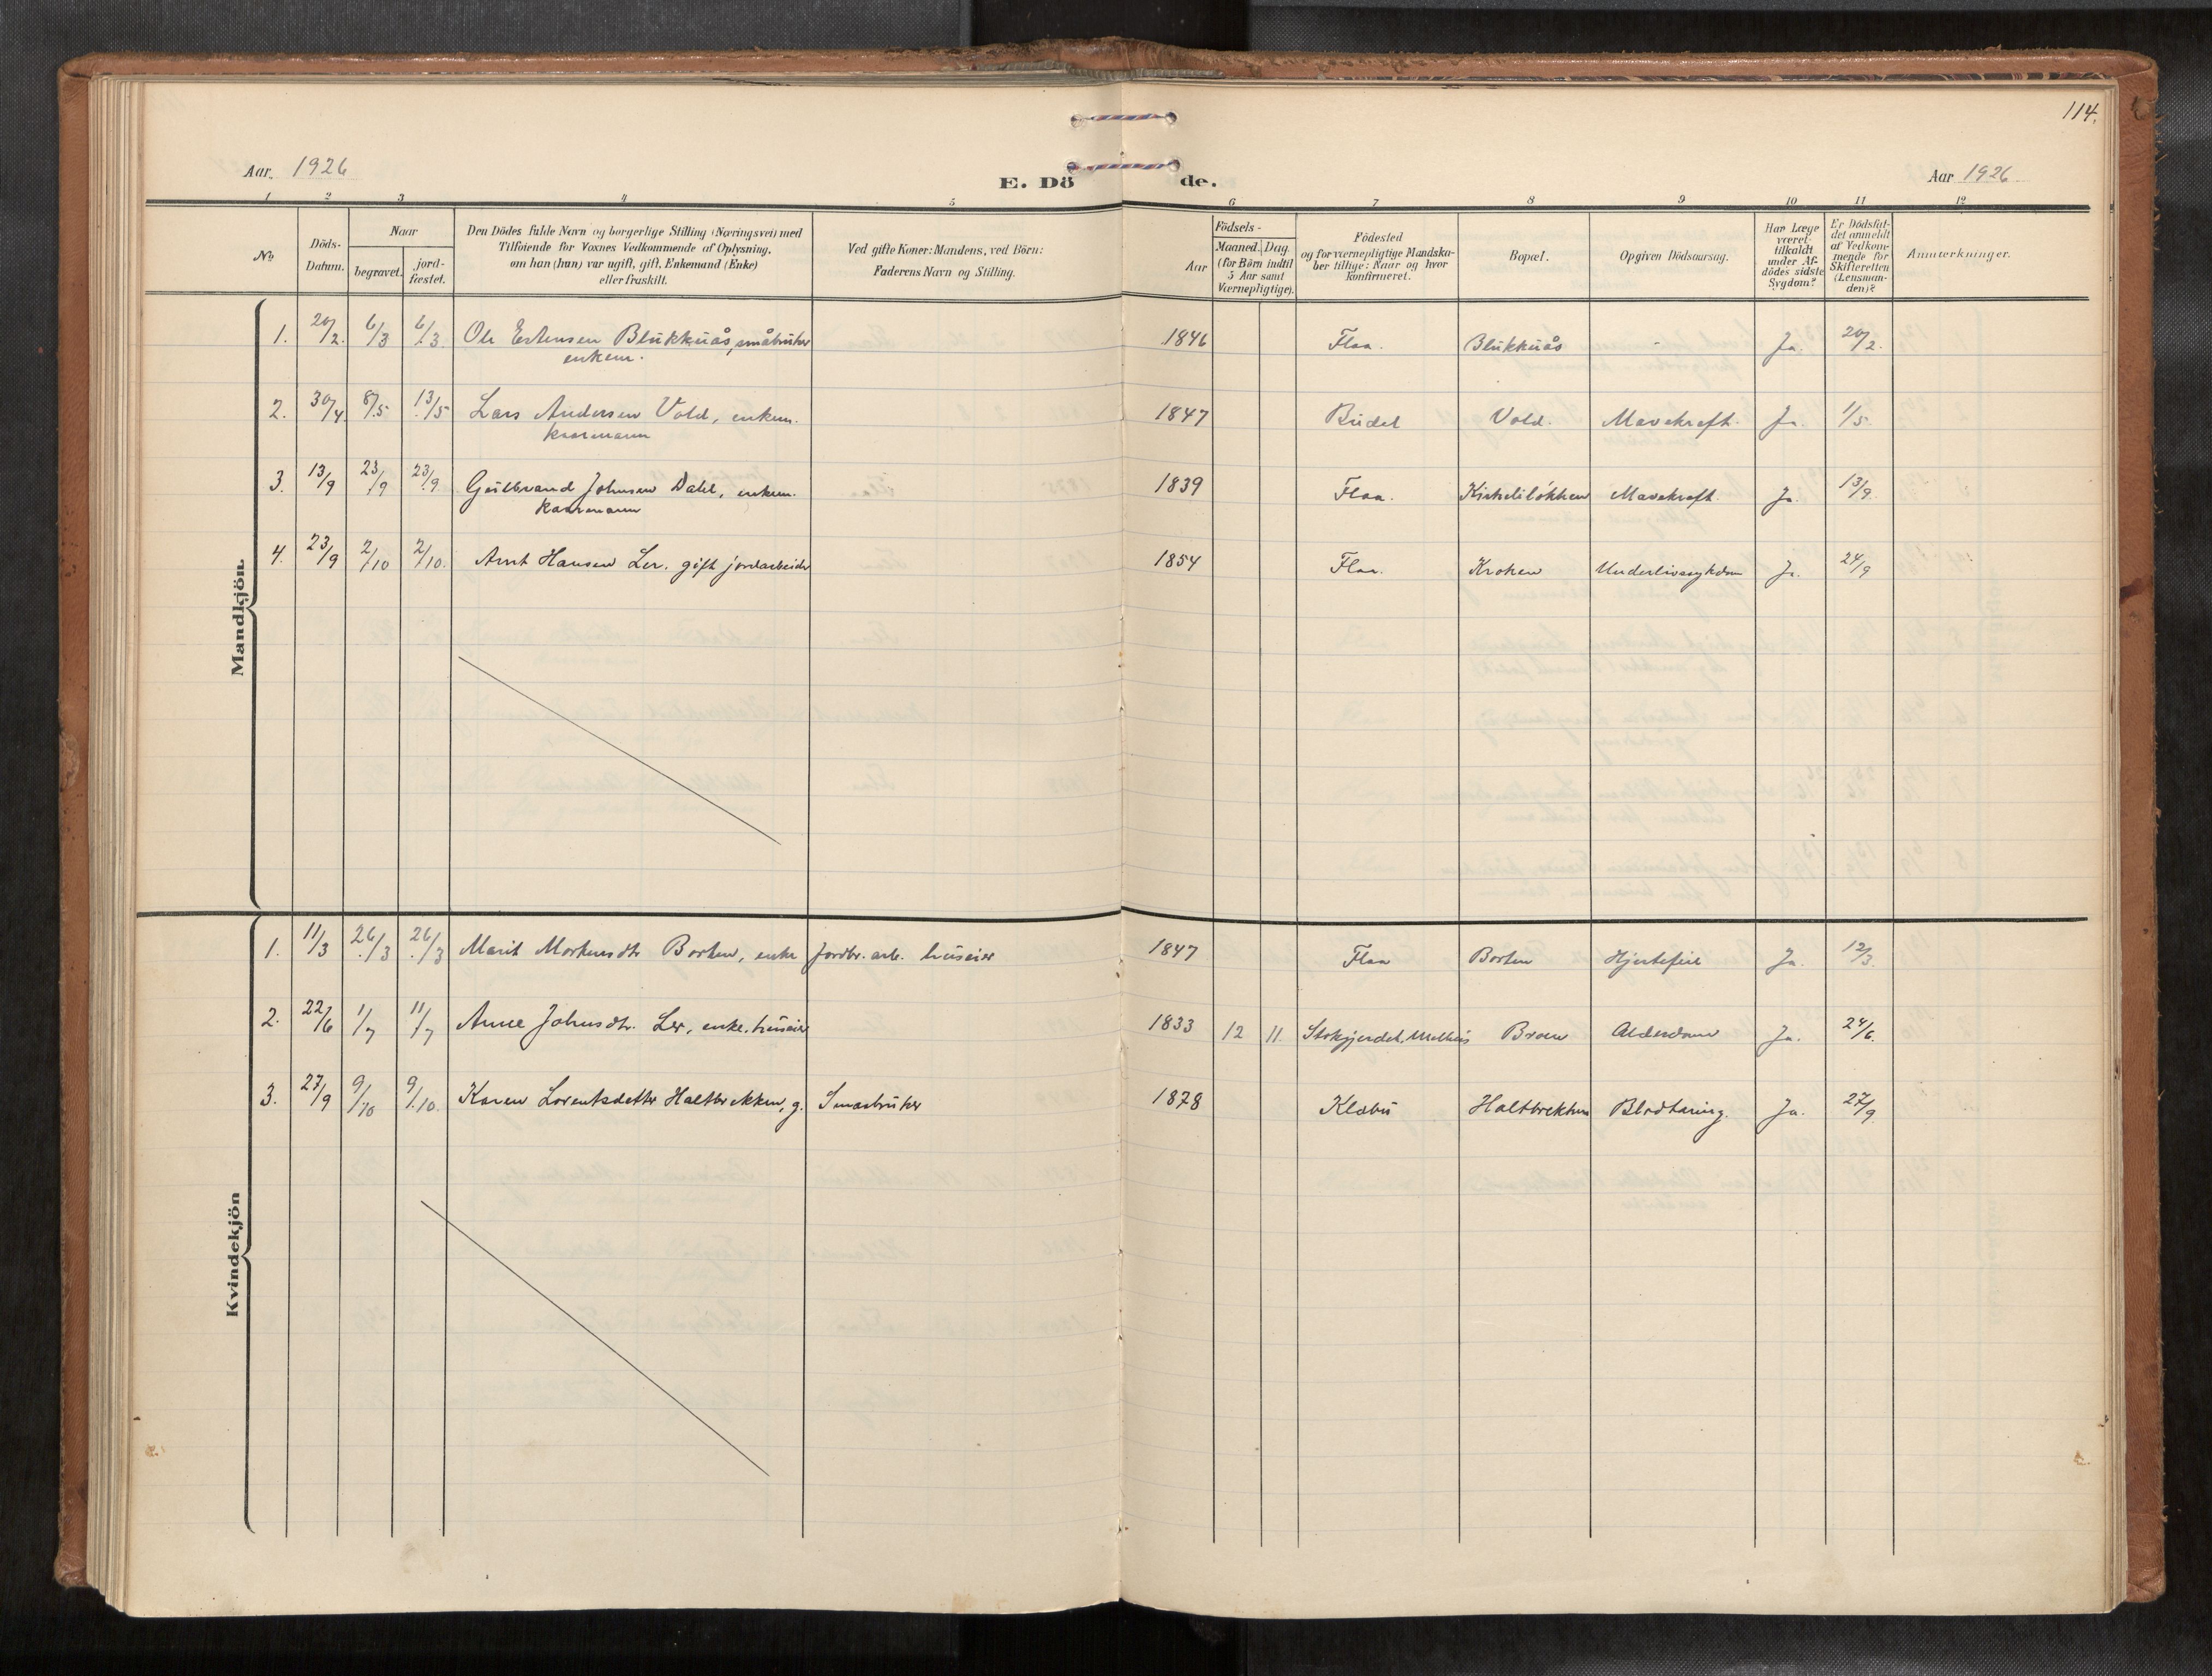 114.
Aar. 1926
E. Dö de.
Aar 1926
1 2 3 4 5 6 7 8 9 10 11 12
No
Döds-
Datum.
Naar
begravet.
jord-
fæstet.
Den Dödes fulde Navn og borgerlige Stilling (Næringsvei) med
Tilföiende for Voxnes Vedkommende af Oplysning,
om han (hun) var ugift, gift, Enkemand (Enke)
eller fraskilt.
Ved gifte Koner: Mandens, ved Börn:
Faderens Navn og Stilling.
Födsels-
Aar
Maaned. Dag.
(for Börn indtil
5 Aar samt
Værnepligtige).
Födested
og for værnepligtige Mandska-
ber tillige: Naar og hvor
konfirmeret.
Bopæl.
Opgiven Dödsaarsag.
Har Læge
været
tilkaldt
under Af-
dödes sidste
Sygdom?
Er Dödsfal-
det anmeldt
af Vedkom-
mende for
Skifteretten
(Lensman-
den)?
Anmærkninger.
Mandkjön.
1. 20/2. 6/3 6/3 Ole Estensen Blukkuås, småbruker 1846 Flaa. Blukkuås - Ja. 20/2.
enkem.
2. 30/4 8/5 13/5 Lars Andersen Vold, enkem. 1847 Budal Vold. Mavekræft. Ja. 1/5
kaarmann
3. 13/9 23/9 23/9 Gulbrand Johnsen Dahl, enkem. 1839 Flaa. Mavekræft Ja. 13/9
kaarmann
4. 23/9 2/10 2/10. Arnt Hansen Ler. gift jordarbeider 1854 Flaa. Kroken Underlivssykdom Ja. 24/9
Kvindekjön
1. 11/3 26/3 26/3 Marit Mortensdtr Borten, enke Jordbr. arb. huseier 1847 Flaa Borten Hjertefeil Ja. 12/3.
2. 22/6 1/7 11/7 Anne Johnsdtr. Ler, enke, huseier 1833 12 11. Melhus Broen Alderdom Ja. 24/6.
3. 27/9 9/10 9/10. Karen Lorentsdatter Haltbrekken, g. Smaabruker 1878 Klæbu Haltbrekken Blodtæring. Ja. 27/9